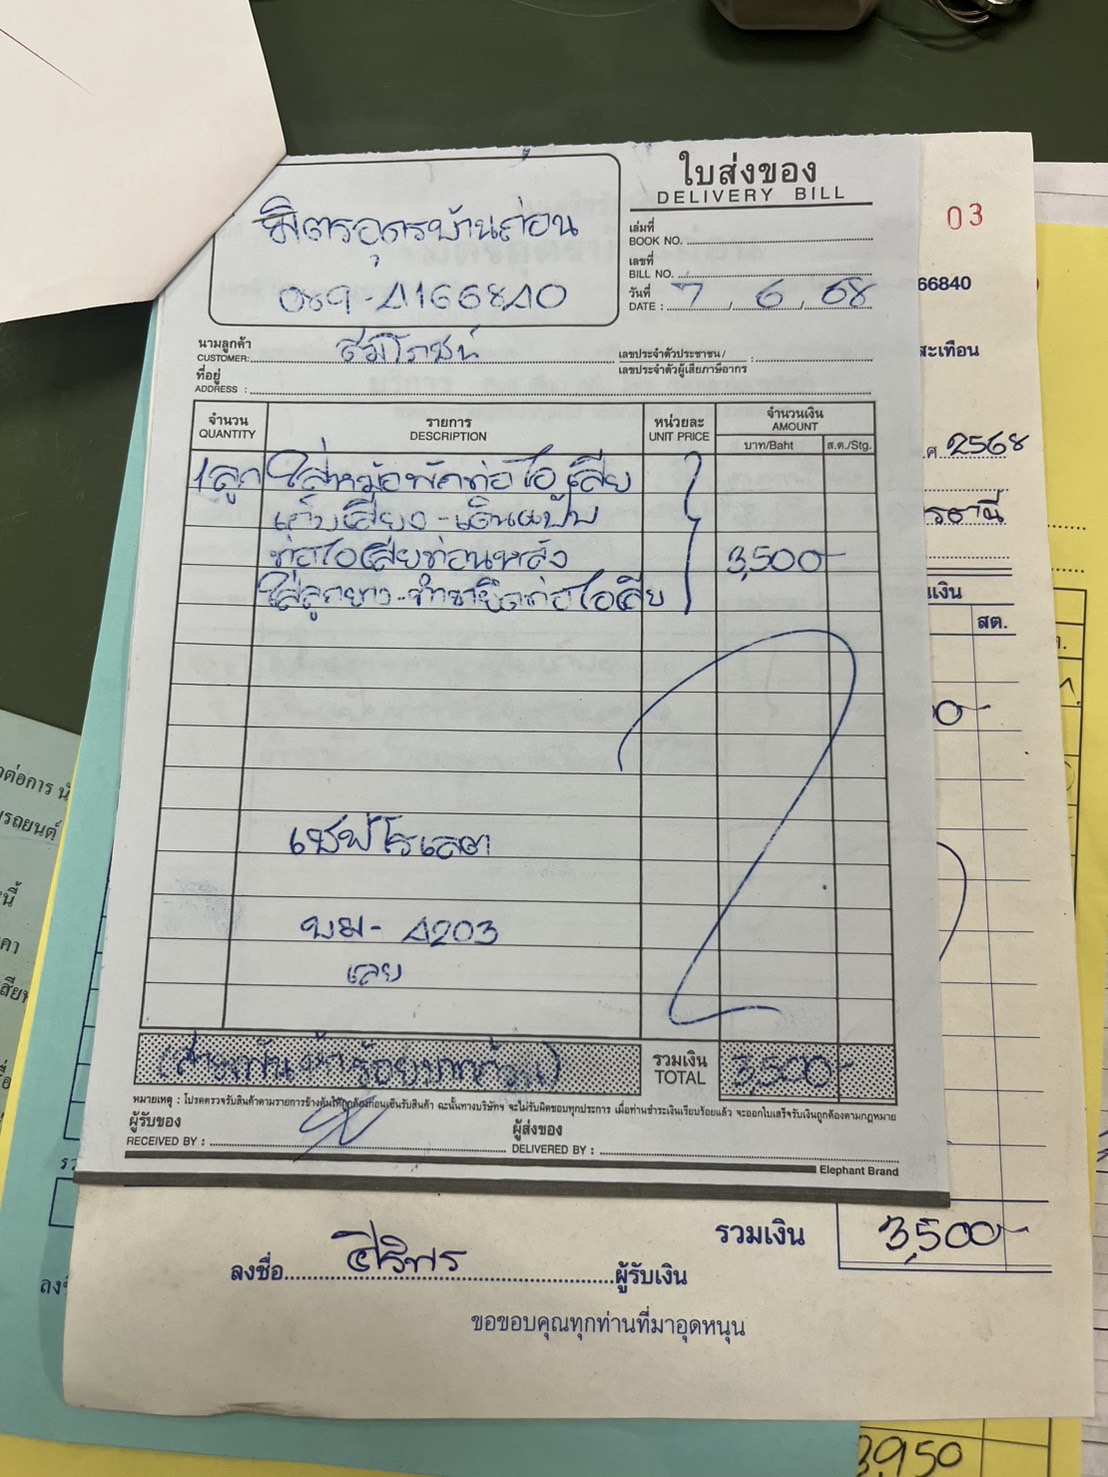 ใบส่งของ
DELIVERY BILL
มิตรอุดรบ้านถ่อน
089-4166840
เล่มที่
BOOK NO.
เลขที่
BILL NO.
วันที่
DATE : 7 / 6 / 68
นามลูกค้า
CUSTOMER: สมโภชน์
เลขประจำตัวประชาชน /
เลขประจำตัวผู้เสียภาษีอากร :
ที่อยู่
ADDRESS :
จำนวน รายการ หน่วยละ จำนวนเงิน
QUANTITY DESCRIPTION UNIT PRICE AMOUNT
บาท/Baht ส.ต./Stg.
1ลูก ใส่หม้อพักท่อไอเสีย
เก็บเสียง-เดินแป๊บ
ท่อไอเสียท่อนหลัง 3,500-
ใส่ลูกยาง-ทำขายึดท่อไอเสีย
เชฟโรเลต
บม- 4203
เลย
(สามพันห้าร้อยบาทถ้วน) รวมเงิน 3,500-
TOTAL
หมายเหตุ : โปรดตรวจรับสินค้าตามรายการข้างต้นให้ถูกต้องก่อนเซ็นรับสินค้า ฉะนั้นทางบริษัทฯ จะไม่รับผิดชอบทุกประการ เมื่อท่านชำระเงินเรียบร้อยแล้ว จะออกใบเสร็จรับเงินถูกต้องตามกฎหมาย
ผู้รับของ ผู้ส่งของ
RECEIVED BY : DELIVERED BY :
Elephant Brand
03
66840
สะเทือน
ศ. 2568
รธานี
เงิน
สต.
0-
รวมเงิน 3,500-
ลงชื่อ ศิริพร ผู้รับเงิน
ขอขอบคุณทุกท่านที่มาอุดหนุน
3,950
ต่อการ
รถยนต์
นี้
คา
ลงชื่